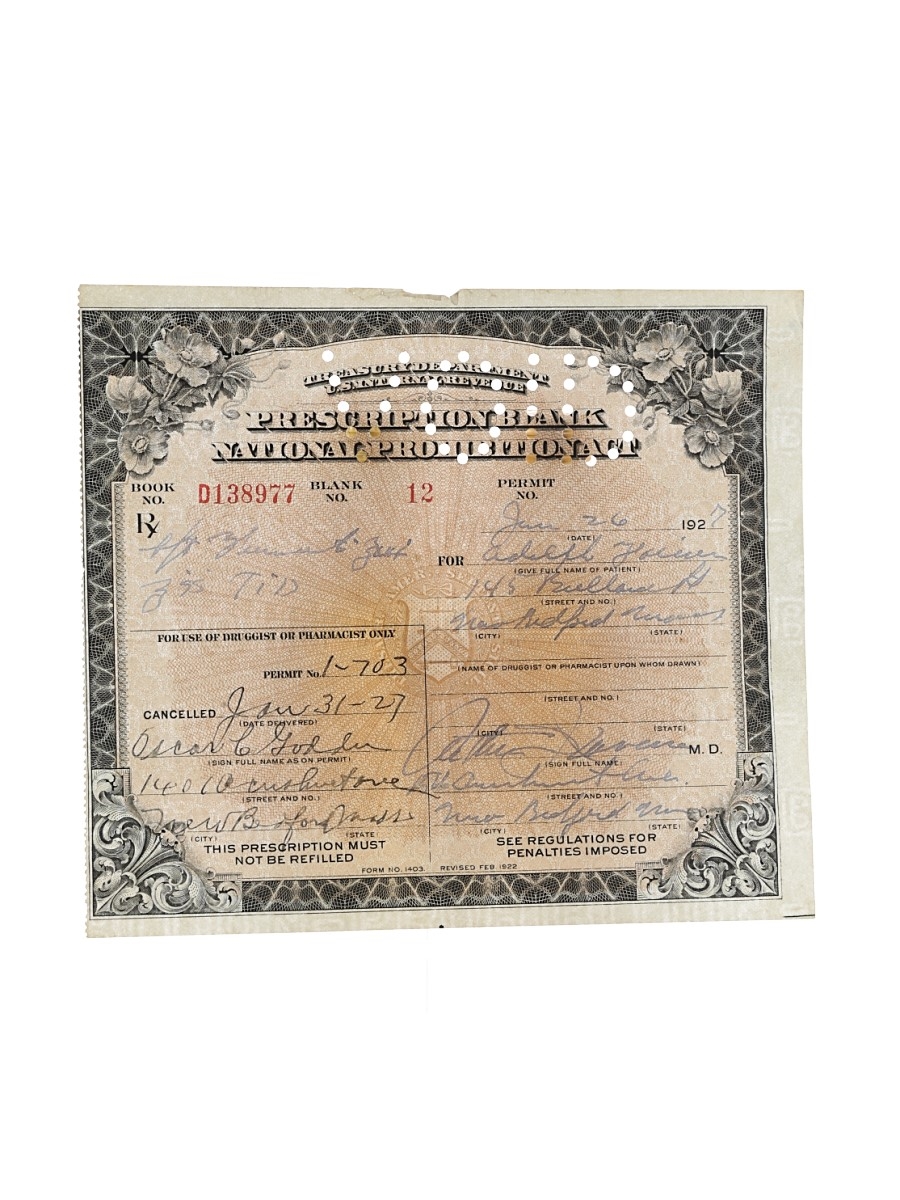 TREASURY DEPARTMENT
U.S. INTERNAL REVENUE
PRESCRIPTION BLANK
NATIONAL PROHIBITION ACT
BOOK NO. D138977 BLANK NO. 12 PERMIT NO.
Rx
Jan 26 1927
(DATE)
FOR Adolph
(GIVE FULL NAME OF PATIENT)
TID
145 St
(STREET AND NO.)
New Bedford Mass
(CITY) (STATE)
FOR USE OF DRUGGIST OR PHARMACIST ONLY
PERMIT No. 1-703
(NAME OF DRUGGIST OR PHARMACIST UPON WHOM DRAWN)
(STREET AND NO.)
CANCELLED Jan 31-27
(DATE DELIVERED)
(CITY) (STATE)
Oscar C
(SIGN FULL NAME AS ON PERMIT)
M.D.
(SIGN FULL NAME)
1401
(STREET AND NO.)
Ave.
(STREET AND NO.)
New Bedford Mass
(CITY) (STATE
New Bedford
(CITY) (STATE)
THIS PRESCRIPTION MUST
NOT BE REFILLED
SEE REGULATIONS FOR
PENALTIES IMPOSED
FORM NO. 1403. REVISED FEB. 1922